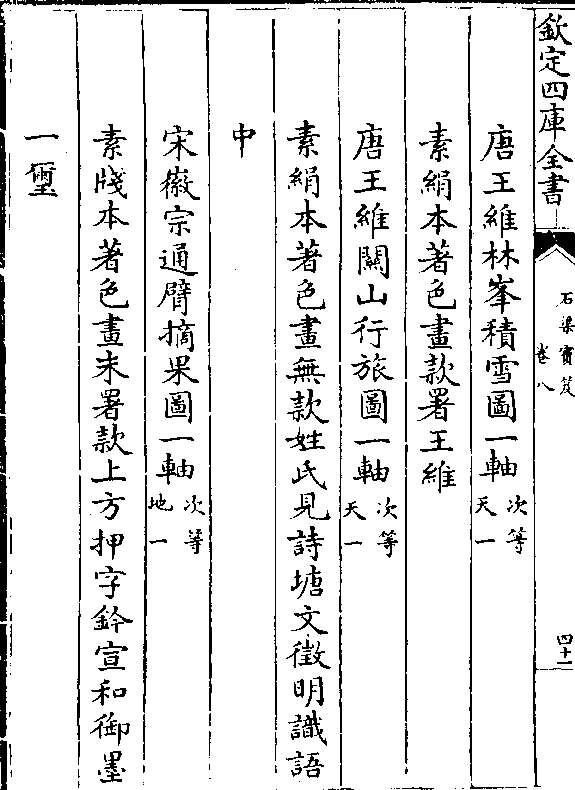 欽定四庫全書
石渠寶笈
卷八
四十一
唐王維林峯積雪圖一軸次等天一
素絹本著色畫款署王維
唐王維關山行旅圖一軸次等天一
素絹本著色畫無款姓氏見詩塘文徵明識語
中
宋徽宗通臂摘果圖一軸次等地一
素牋本著色畫未署款上方押字鈐宣和御墨
一璽